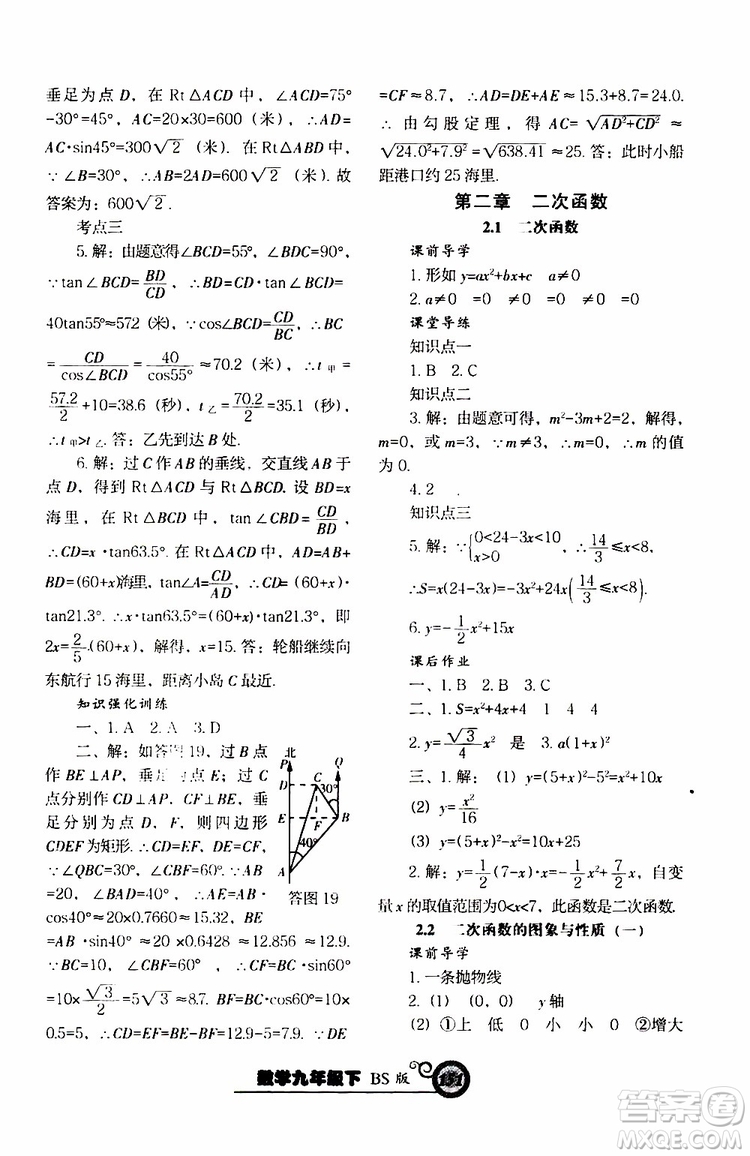 垂足为点 D，在 Rt△ACD 中，∠ACD=75°
-30°=45°，AC=20×30=600（米），∴AD=
AC·sin45°=300√2（米）．在 Rt△ABD 中，
∵∠B=30°，∴AB=2AD=600√2（米）．故
答案为：600√2．
考点三
5. 解：由题意得∠BCD=55°，∠BDC=90°，
∵tan∠BCD=BD/CD，∴BD=CD·tan∠BCD=
40tan55°≈572（米），∵cos∠BCD=CD/BC，∴BC
=CD/cos∠BCD=40/cos55°≈70.2（米），∴t甲=
57.2/2+10=38.6（秒），t乙=70.2/2=35.1（秒），
∴t甲>t乙．答：乙先到达 B 处．
6. 解：过 C 作 AB 的垂线，交直线 AB 于
点 D，得到 Rt△ACD 与 Rt△BCD．设 BD=x
海里，在 Rt△BCD 中，tan∠CBD=CD/BD，
∴CD=x·tan63.5°．∴AD=AB+
BD=(60+x)海里，tan∠A=CD/AD，∴CD=(60+x)·
tan21.3°．∴x·tan63.5°=(60+x)·tan21.3°，即
2x=2/5(60+x)，解得，x=15. 答：轮船继续向
东航行 15 海里，距离小岛 C 最近．
知识强化训练
一、1. A 2. A 3. D
二、解：如答图 19，过 B 点
作 BE⊥AP，垂足为点 E；过 C
点分别作 CD⊥AP，CF⊥BE，垂
足分别为点 D，F，则四边形
CDEF 为矩形．∴CD=EF，DE=CF，
∵∠QBC=30°，∴∠CBF=60°．∵AB
=20，∠BAD=40°，∴AE=AB·
cos40°≈20×0.7660≈15.3，BE
=AB·sin40°≈20×0.6428≈12.856≈12.9.
∵BC=10，∠CBF=60°，∴CF=BC·sin60°
=10×√3/2=5√3≈8.7. BF=BC·cos60°=10×
0.5=5，∴CD=EF=BE-BF≈12.9-5=7.9. ∵DE
北
P
Q
D
C
30°
E
F
B
40°
A
答图 19
=CF≈8.7，∴AD=DE+AE≈15.3+8.7=24.0.
∴由勾股定理，得 AC=√(AD²+CD²)≈
√(24.0²+7.9²)=√638.41≈25. 答：此时小船
距港口约 25 海里．
第二章 二次函数
2.1 二次函数
课前导学
1. 形如 y=ax²+bx+c a≠0
2. a≠0 =0 ≠0 ≠0 =0
课堂导练
知识点一
1. B 2. C
知识点二
3. 解：由题意可得，m²-3m+2=2，解得，
m=0，或 m=3，∵m-3≠0，∴m=0，∴m 的值
为 0.
4. 2
知识点三
5. 解：∵{0<24-3x<10 x>0，∴14/3≤x<8，
∴S=x(24-3x)=-3x²+24x(14/3≤x<8)．
6. y=-1/2x²+15x
课后作业
一、1. B 2. B 3. C
二、1. S=x²+4x+4 1 4 4
2. y=√3/4x² 是 3. a(1+x)²
三、1. 解：(1) y=(5+x)²-5²=x²+10x
(2) y=x²/16
(3) y=(5+x)²=x²+10x+25
2. 解：y=1/2(7-x)·x=-1/2x²+7/2x，自变
量 x 的取值范围为0<x<7，此函数是二次函数．
2.2 二次函数的图象与性质（一）
课前导学
1. 一条抛物线
2. (1) (0，0) y 轴
(2) ①上 低 0 小 小 0 ②增大
数学九年级下 BS 版 151
答案圈
MXQE.COM